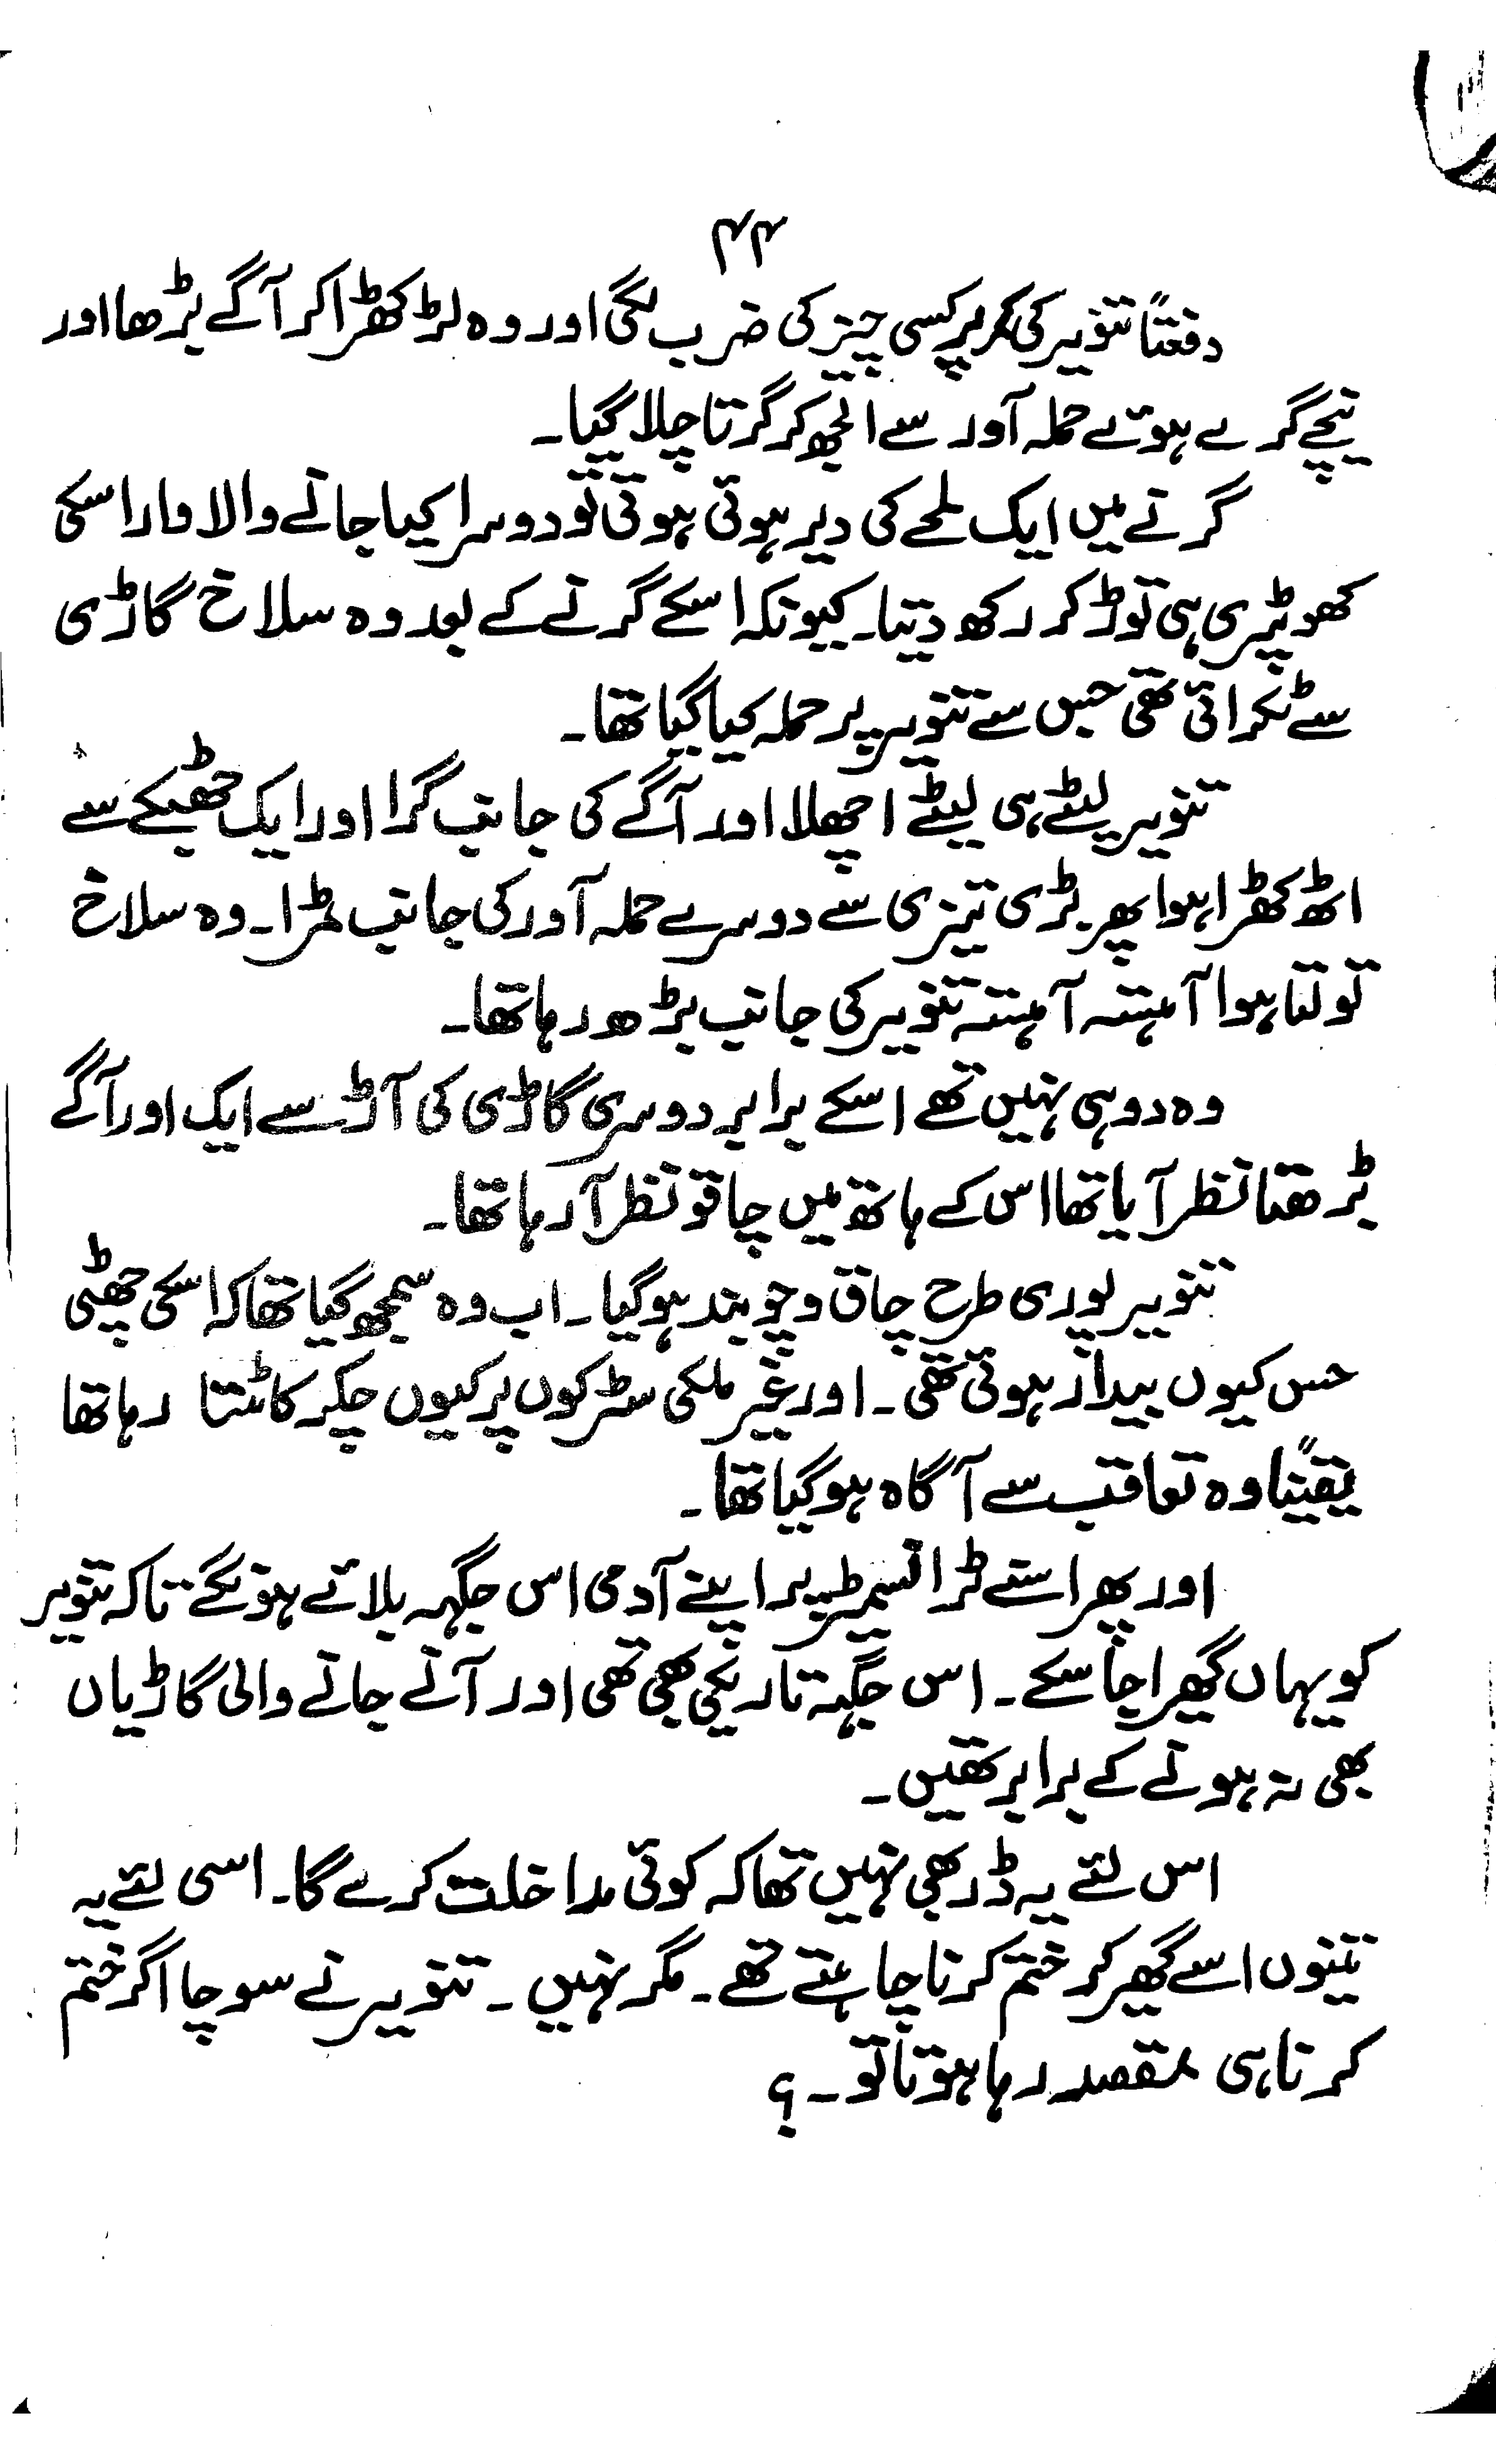 ۴۴
دفعتاً تنویر کی کمر پر کسی چیز کی ضرب لگی اور وہ لڑکھڑا کر آگے بڑھا اور
نیچے گرے ہوئے حملہ آور سے الجھ کر گرتا چلا گیا۔
گرنے میں ایک لمحے کی دیر ہوئی ہوتی تو دوسرا کیا جانے والا وار اسکی
کھوپڑی ہی توڑ کر رکھ دیتا۔ کیونکہ اسکے گرنے کے بعد وہ سلاخ گاڑی
سے ٹکرائی تھی جس سے تنویر پر حملہ کیا گیا تھا۔
تنویر لیٹے ہی لیٹے اچھلا اور آگے کی جانب گرا اور ایک جھٹکے سے
اٹھ کھڑا ہوا پھر بڑی تیزی سے دوسرے حملہ آور کی جانب مڑا۔ وہ سلاخ
تولتا ہوا آہستہ آہستہ تنویر کی جانب بڑھ رہا تھا۔
وہ دو ہی نہیں تھے اسکے برابر دوسری گاڑی کی آڑ سے ایک اور آگے
بڑھتا نظر آیا تھا اس کے ہاتھ میں چاقو نظر آرہا تھا۔
تنویر پوری طرح چاق و چوبند ہوگیا۔ اب وہ سمجھ گیا تھا کہ اسکی چھٹی
حس کیوں بیدار ہوئی تھی۔ اور غیر ملکی سڑکوں پر کیوں چکر کاٹتا رہا تھا
یقیناً وہ تعاقب سے آگاہ ہوگیا تھا۔
اور پھر اسنے ٹرانسمیٹر پر اپنے آدمی اس جگہہ بلائے ہونگے تاکہ تنویر
کو یہاں گھیرا جاسکے۔ اس جگہہ تاریکی بھی تھی اور آنے جانے والی گاڑیاں
بھی نہ ہونے کے برابر تھیں۔
اس لئے یہ ڈر بھی نہیں تھا کہ کوئی مداخلت کرے گا۔ اسی لئے یہ
تینوں اسے گھیر کر ختم کرنا چاہتے تھے۔ مگر نہیں۔ تنویر نے سوچا اگر ختم
کرنا ہی مقصد رہا ہوتا تو۔؟